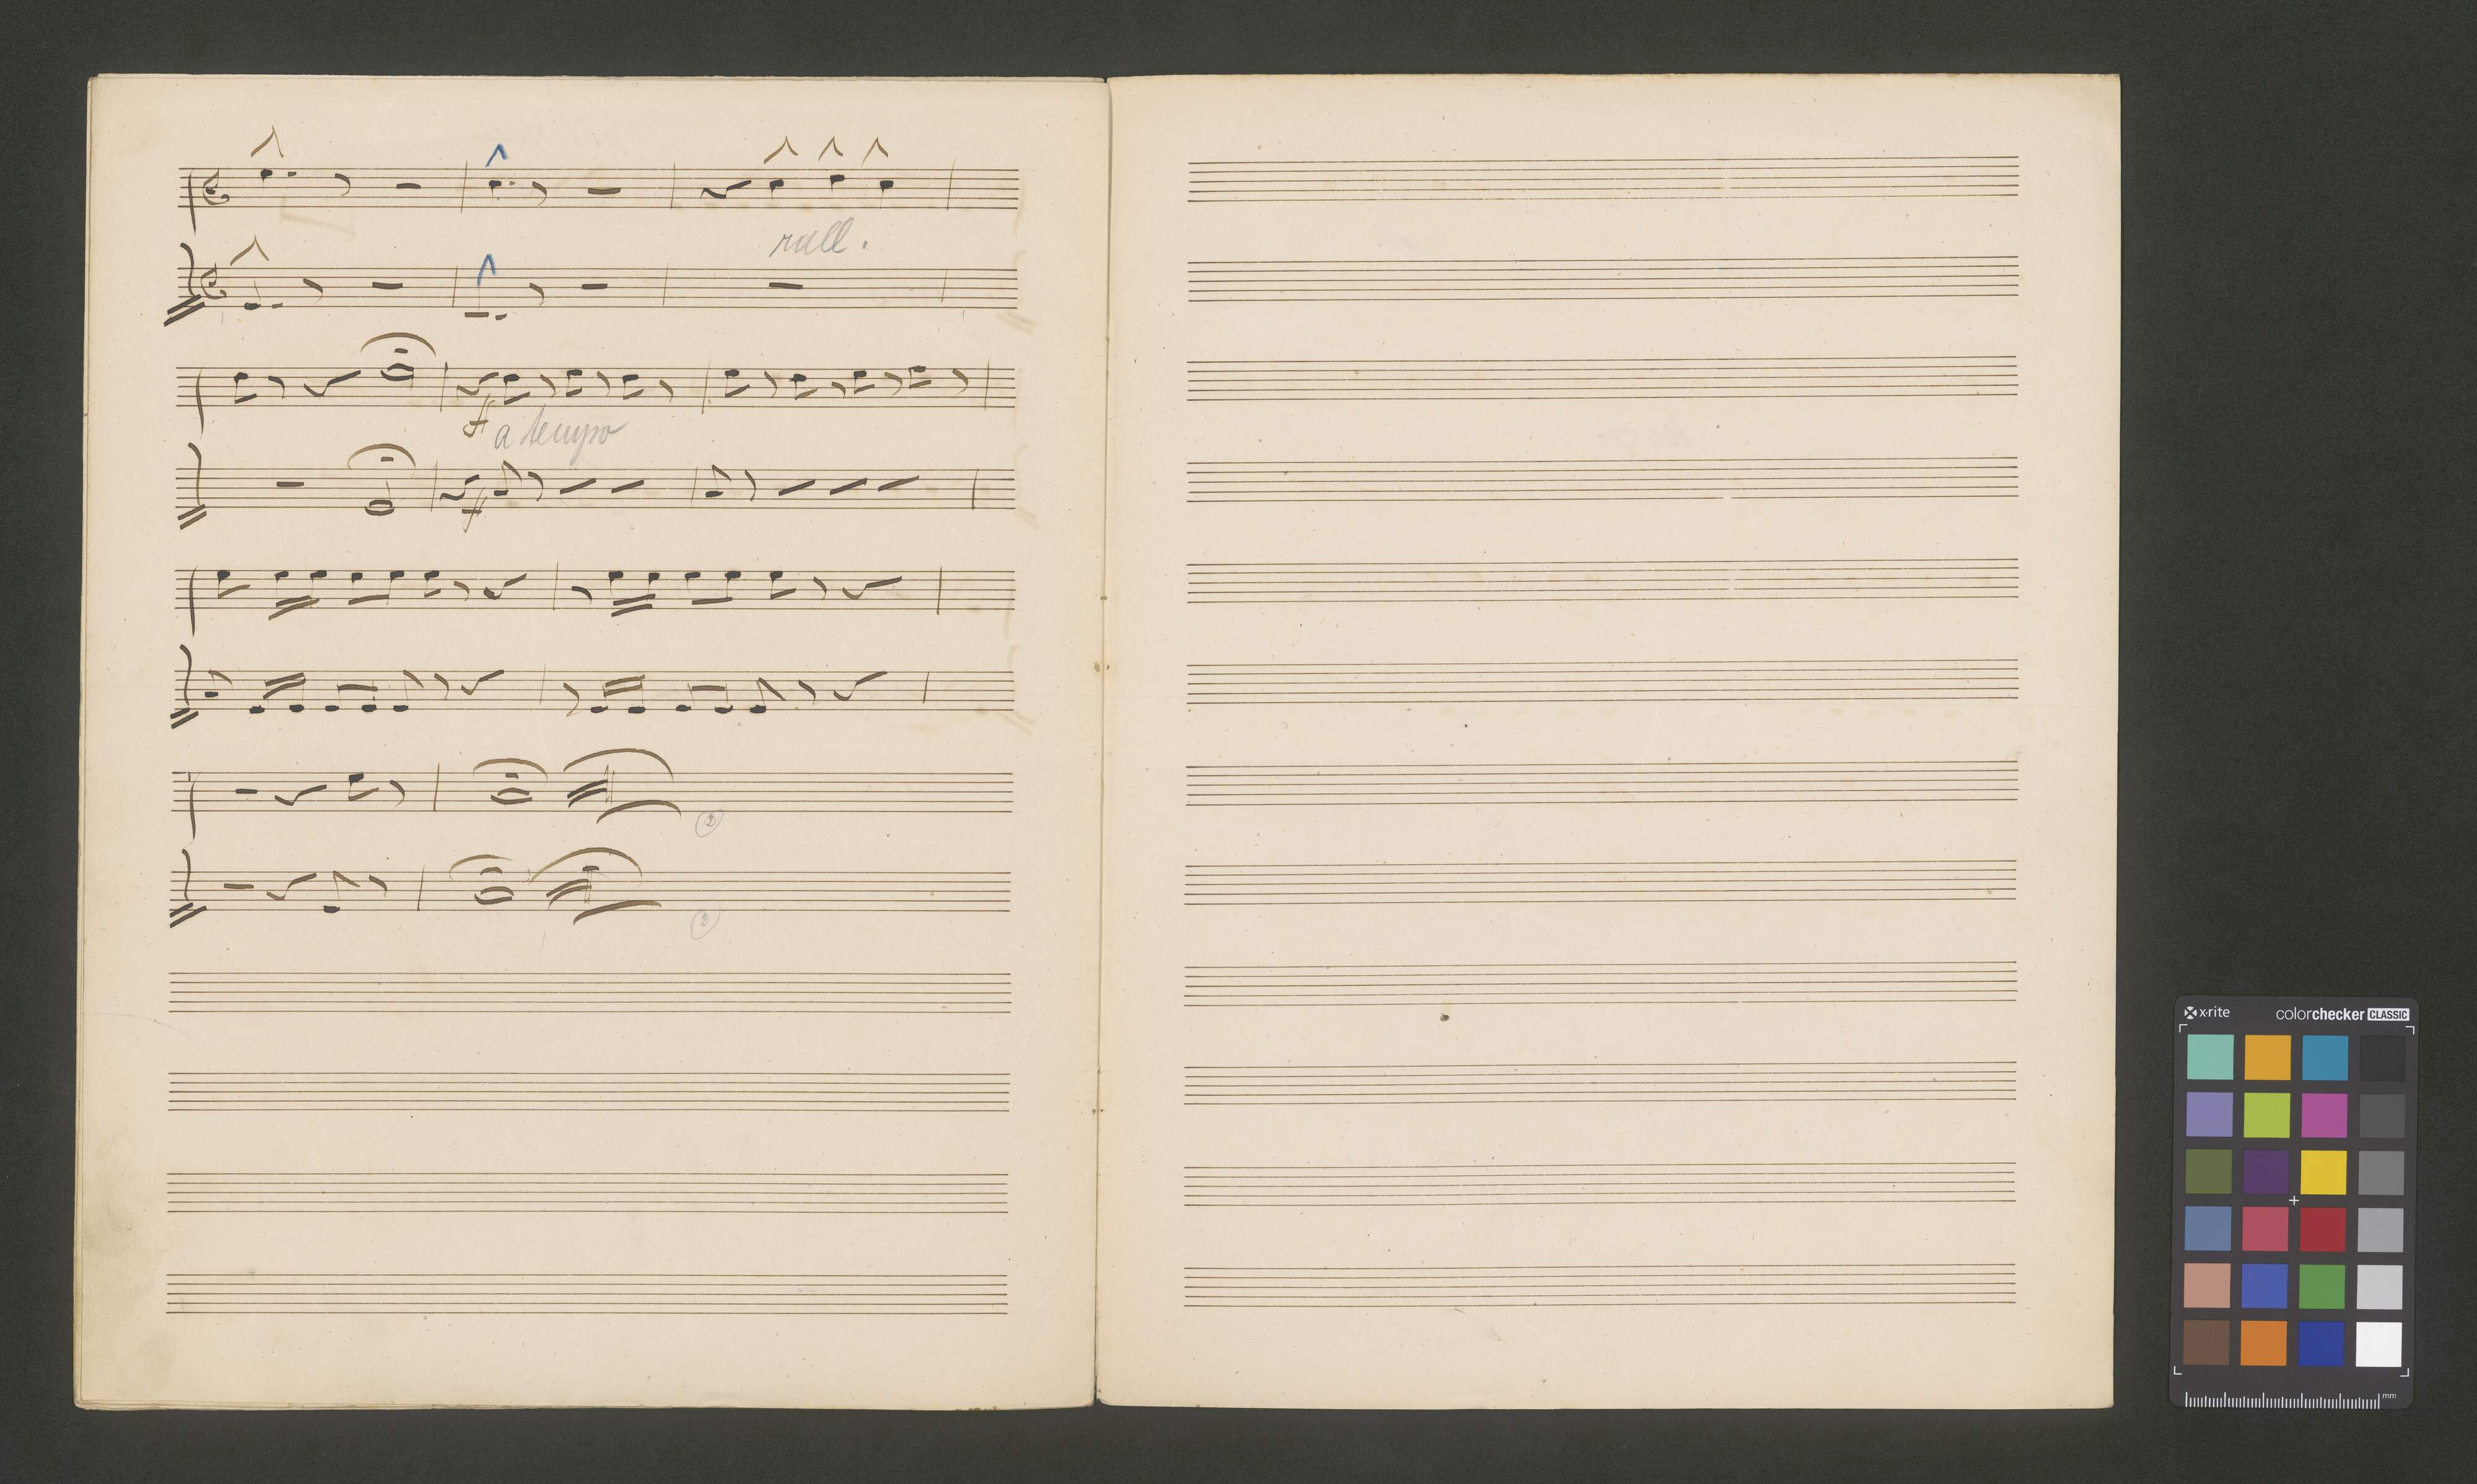 rall.
ff
a tempo
ff
2
2
x·rite colorchecker CLASSIC
mm